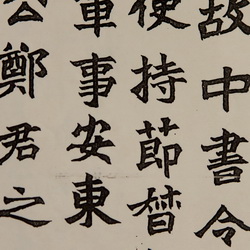 故中書令
使持節督
軍事安東
公鄭君之